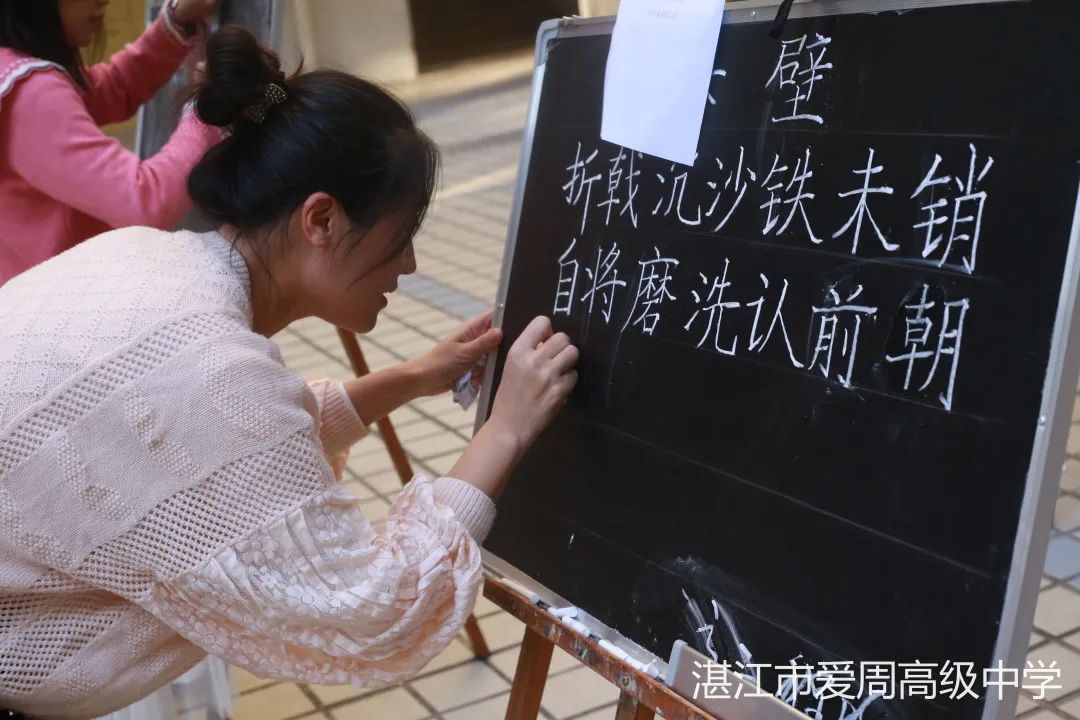 壁
折戟沉沙铁未销
自将磨洗认前朝
湛江市爱周高级中学